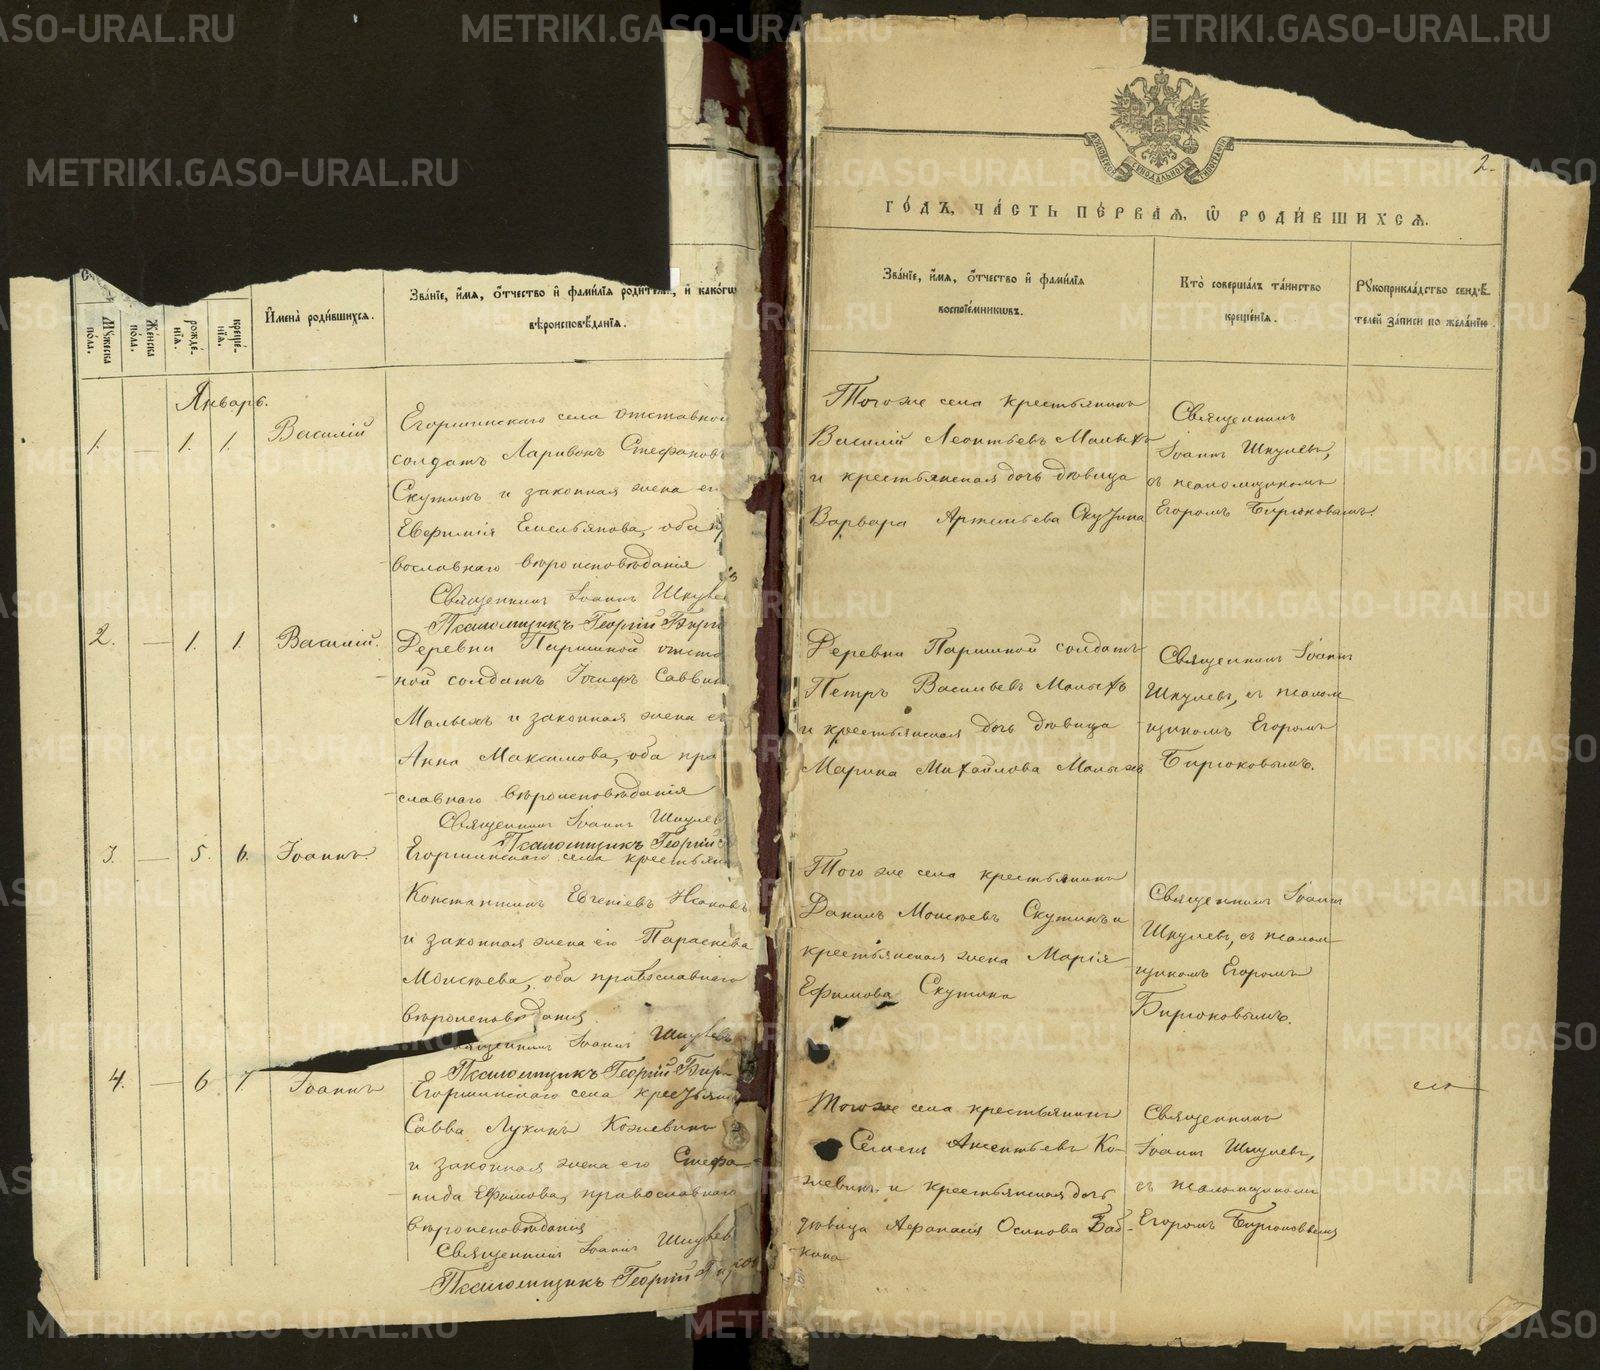 2.
МОСКОВСКОЙ СѴНОДАЛЬНОЙ ТИПОГРАФІИ
ГО́ДЪ, ЧА́СТЬ ПЕ́РВАѦ, Ѽ РОДИ́ВШИХСѦ.
Мꙋ́жеска по́ла.
Же́нска по́ла.
рожде́-
нїѧ.
креще́-
нїѧ.
И҆мена̀ роди́вшихсѧ.
Зва́нїе, и҆́мѧ, ѻ҆́тчество и҆ фами́лїѧ роди́телей, и҆ како́гѡ
вѣроисповѣ́данїѧ.
Зва́нїе, и҆́мѧ, ѻ҆́тчество и҆ фами́лїѧ
воспрїе́мникѡвъ.
Кто̀ соверша́лъ та́инство
креще́нїѧ.
Рꙋкоприкла́дство свидѣ́-
телей за́писи по жела́нїю.
Январь.
1. — 1. 1.
Василій
Егоршинскаго села отставной
солдатъ Ларивонъ Стефановъ
Скутинъ и законная жена его
Евфимія Емельянова, оба пра
вославнаго вѣроисповѣданія
Священникъ Іоаннъ Шкулев
Псаломщикъ Георгій Бирю
Тогоже села крестьянинъ
Василій Леонтьевъ Малыхъ
и крестьянская дочь дѣвица
Варвара Артемьева Скутина
Священникъ
Іоаннъ Шкулевъ,
съ псаломщикомъ
Егоромъ Бирюковымъ.
2. — 1. 1.
Василій.
Деревни Паршиной отста
ной солдатъ Іосифъ Саввин
Малыхъ и законная жена ег
Анна Максимова, оба пра
славнаго вѣроисповѣданія
Священникъ Іоаннъ Шкулев
Псаломщикъ Георгій
Деревни Паршиной солдатъ
Петръ Васильевъ Малыхъ
и крестьянская дочь дѣвица
Марина Михайлова Малыхъ
Священникъ Іоаннъ
Шкулевъ, съ псалом
щикомъ Егоромъ
Бирюковымъ.
3. — 5. 6.
Іоаннъ.
Егоршинскаго села крестьян
Константинъ Евгеніевъ Исаковъ
и законная жена его Параскева
Моисѣева, оба православнаго
вѣроисповѣданія.
вященникъ Іоаннъ Шкулевъ
Псаломщикъ Георгій Бирю
Того же села крестьянинъ
Даніилъ Моисѣевъ Скутинъ и
крестьянская жена Марія
Ефимова Скутина
Священникъ Іоаннъ
Шкулевъ, съ псалом
щикомъ Егоромъ
Бирюковымъ.
4. — 6 7.
Іоаннъ
Егоршинскаго села крестьянин
Савва Лукинъ Кожевинъ
и законная жена его Стефа-
нида Ефимова, православнаго
вѣроисповѣданія
Священникъ Іоаннъ Шкулев
Псаломщикъ Георгій Бирюков
Тогоже села крестьянинъ
Семенъ Аксентьевъ Ко-
жевинъ и крестьянская дочь
дѣвица Афанасія Осипова Баб-
кина
Священникъ
Іоаннъ Шкулевъ,
съ псаломщикомъ
Егоромъ Бирюковымъ
METRIKI.GASO-URAL.RU